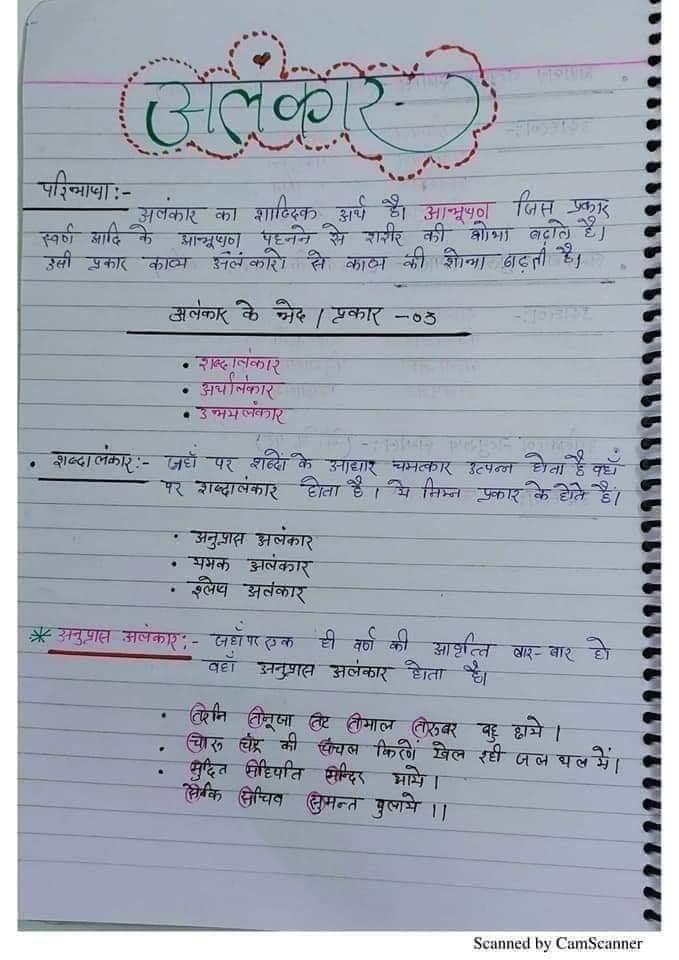 अलंकार-
परिभाषा :-
अलंकार का शाब्दिक अर्थ है। आभूषण जिस प्रकार
स्वर्ण आदि के आभूषण पहनने से शरीर की शोभा बढ़ाते है।
उसी प्रकार काव्य अलंकारो से काव्य की शोभा बढ़ती है।
अलंकार के भेद / प्रकार -03
• शब्दालंकार
• अर्थालंकार
• उभयलंकार
• शब्दालंकार:- जहाँ पर शब्दो के आधार चमत्कार उत्पन्न होता है वहाँ
पर शब्दालंकार होता है। ये निम्न प्रकार के होते है।
• अनुप्रास अलंकार
• यमक अलंकार
• श्लेष अलंकार
* अनुप्रास अलंकार:- जहाँ पर एक ही वर्ण की आवृत्ति बार-बार हो
वहाँ अनुप्रास अलंकार होता है।
• तरनि तनूजा तट तमाल तरुवर बहु छाये।
• चारु चंद्र की चंचल किरणें खेल रही जल थल में।
• मुदित महिपति मन्दिर आये।
सेवक सचिव सुमन्त बुलाये।।
Scanned by CamScanner